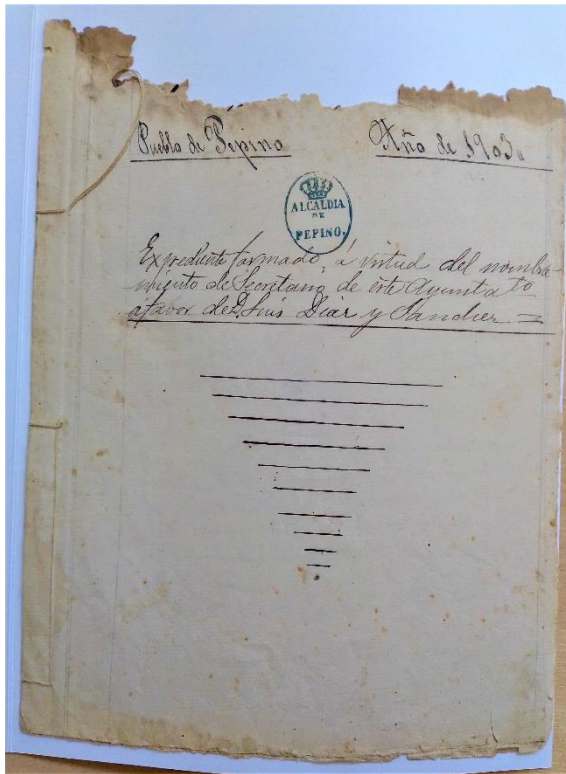 Pueblo de Pepino Año de 1903.
ALCALDIA
DE
PEPINO.
Expediente formado, á virtud del nombra-
miento de Secretario de este Ayuntato
á favor de D. Luis Diaz y Sanchez =